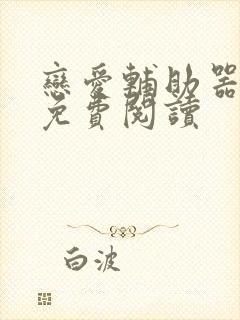 戀愛輔助器
免費閱讀
白波